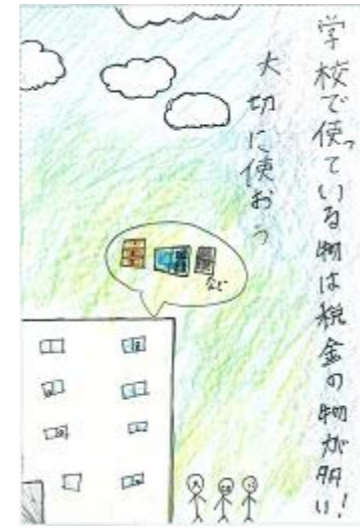 学校で使っている物は税金の物が多い!
大切に使おう
など